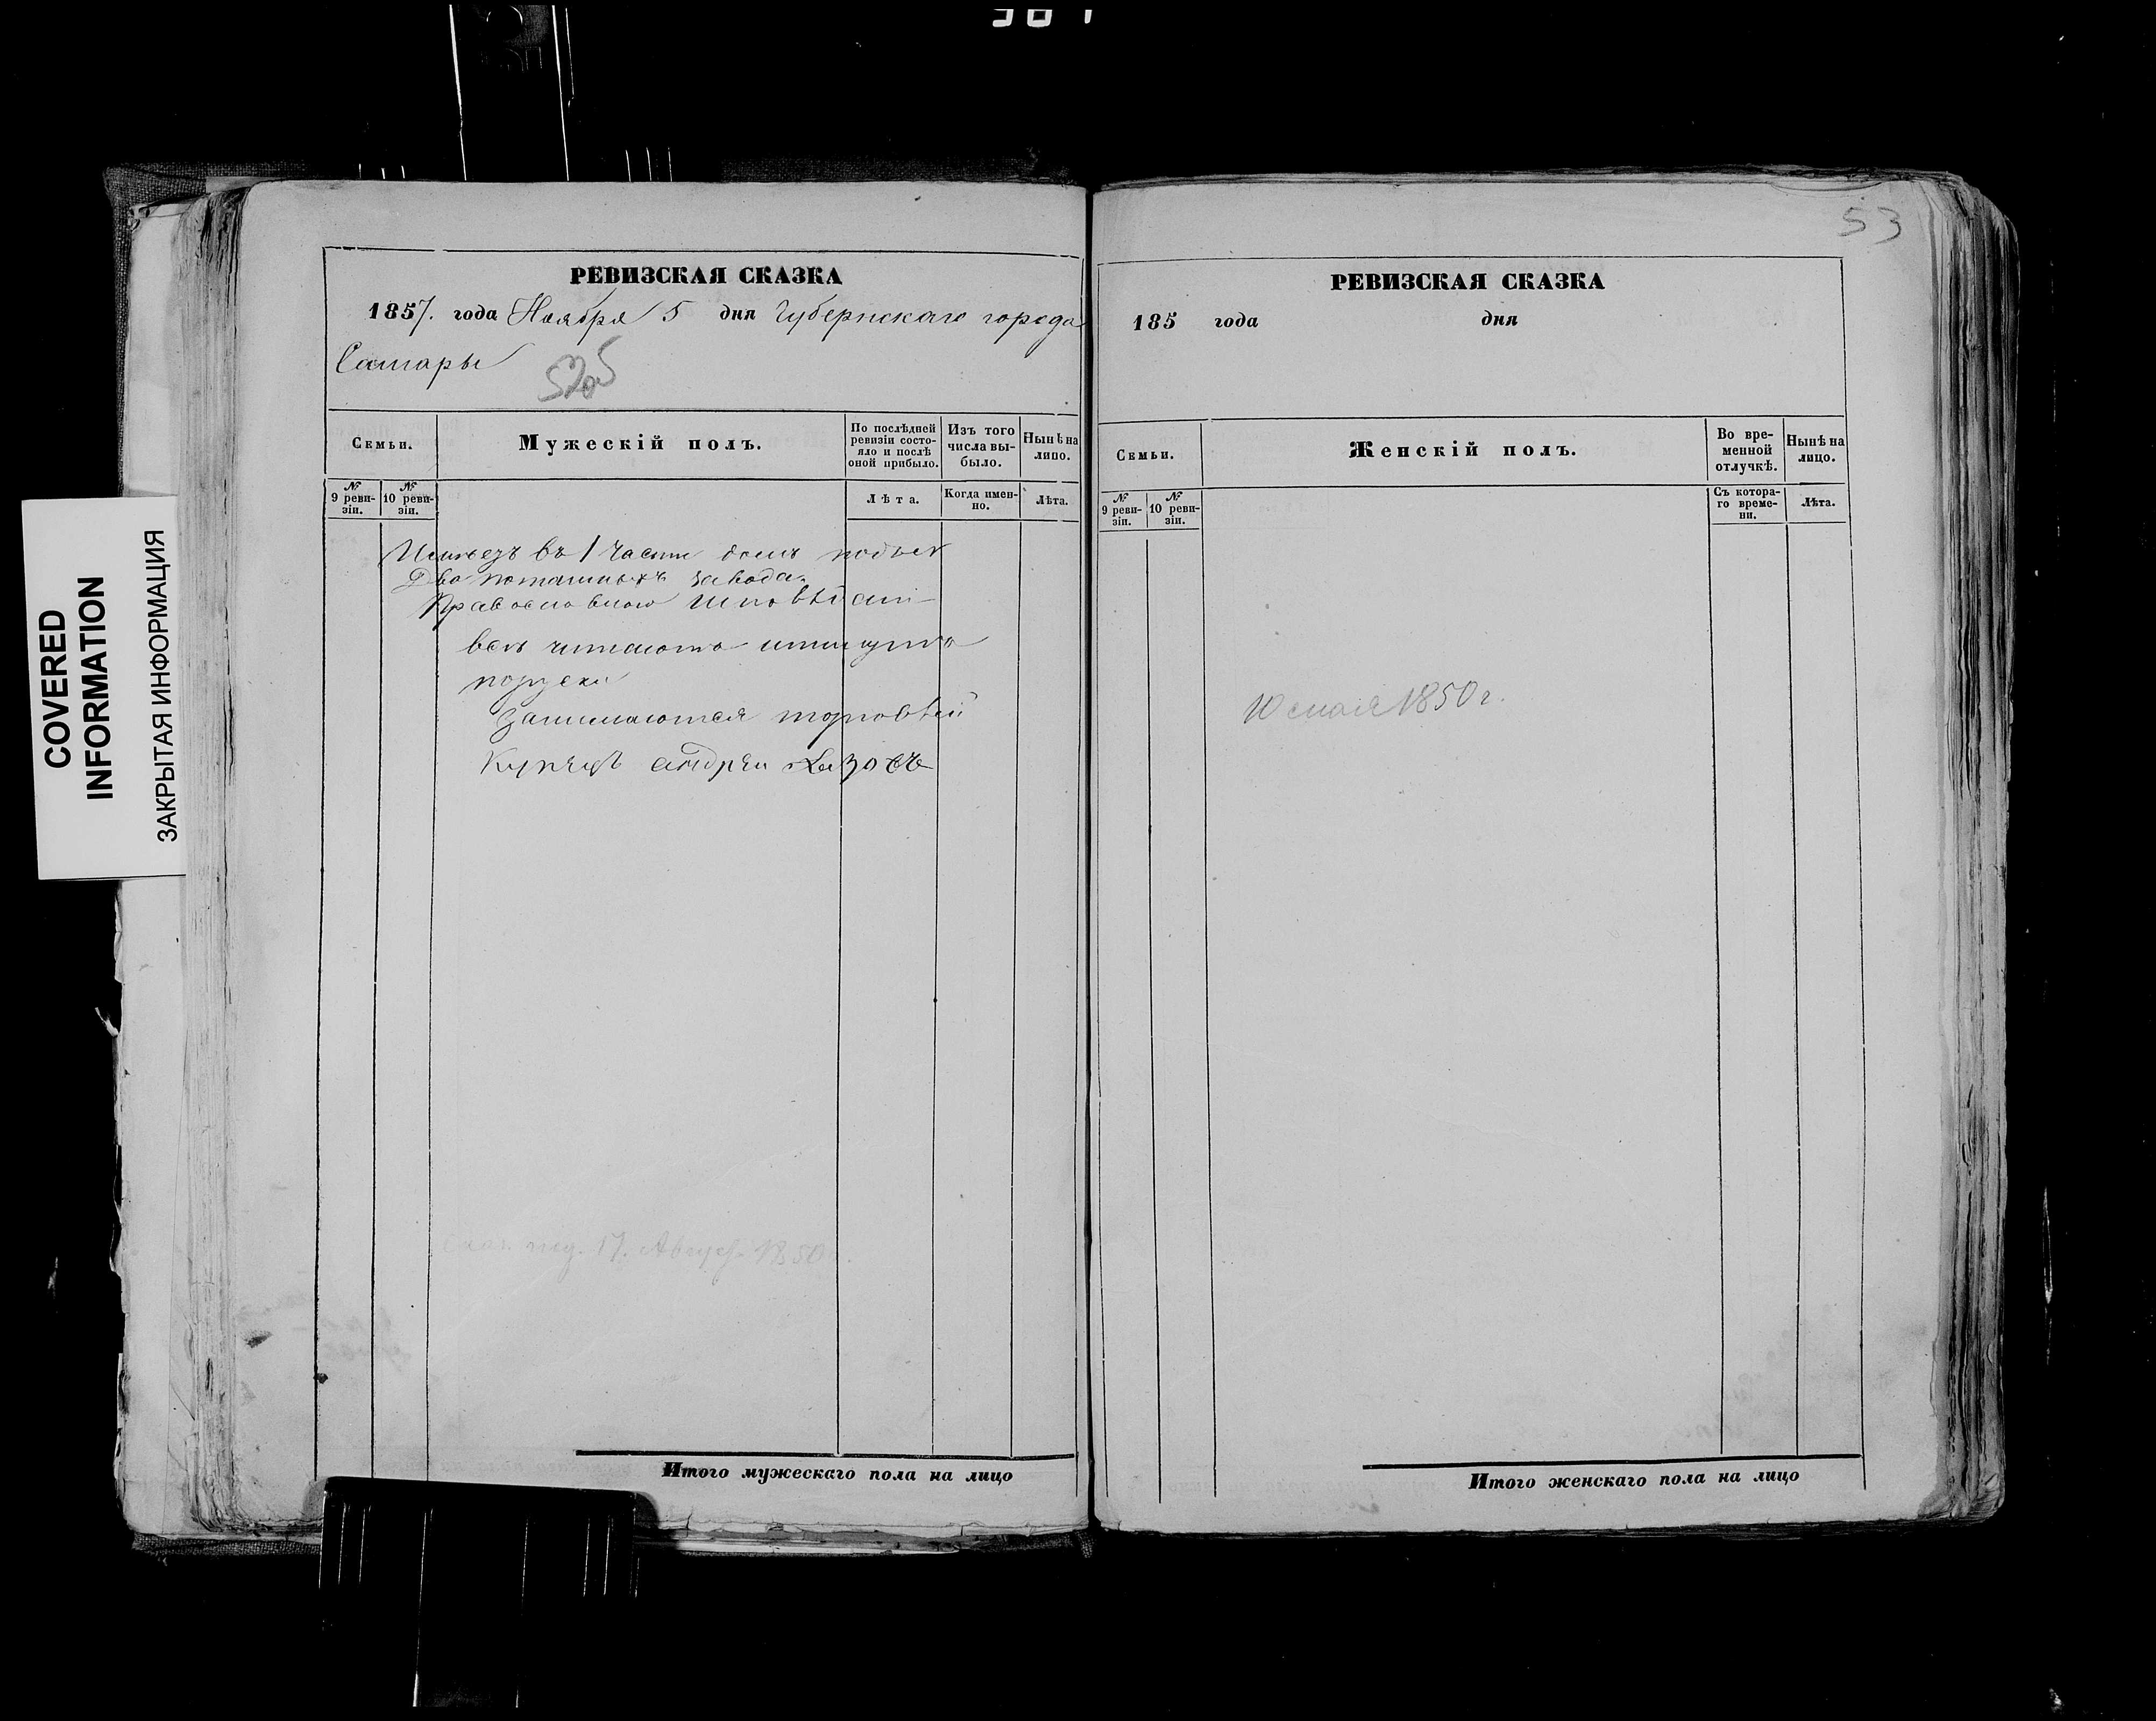 53
COVERED
INFORMATION
ЗАКРЫТАЯ ИНФОРМАЦИЯ
РЕВИЗСКАЯ СКАЗКА
1857. года Ноября 5 дня Губернскаго города
Самары
Семьи.
Мужескій полъ.
По послѣдней ревизіи состо-
яло и послѣ
оной прибыло.
Изъ того
числа вы-
было.
Нынѣ на
лицо.
№
9 реви-
зіи.
№
10 реви-
зіи.
Лѣта.
Когда имен-
но.
Лѣта.
въ 1 части домъ
Два поташныхъ завода.
Православнаго
всѣ читаютъ
занимаются торговлей
Купецъ андрей
17. Август 1850
Итого мужескаго пола на лицо
РЕВИЗСКАЯ СКАЗКА
185 года дня
Семьи.
Женскій полъ.
Во вре-
менной
отлучкѣ.
Нынѣ на
лицо.
№
9 реви-
зіи.
№
10 реви-
зіи.
Съ котора-
го време-
ни.
Лѣта.
10 мая 1850 г.
Итого женскаго пола на лицо